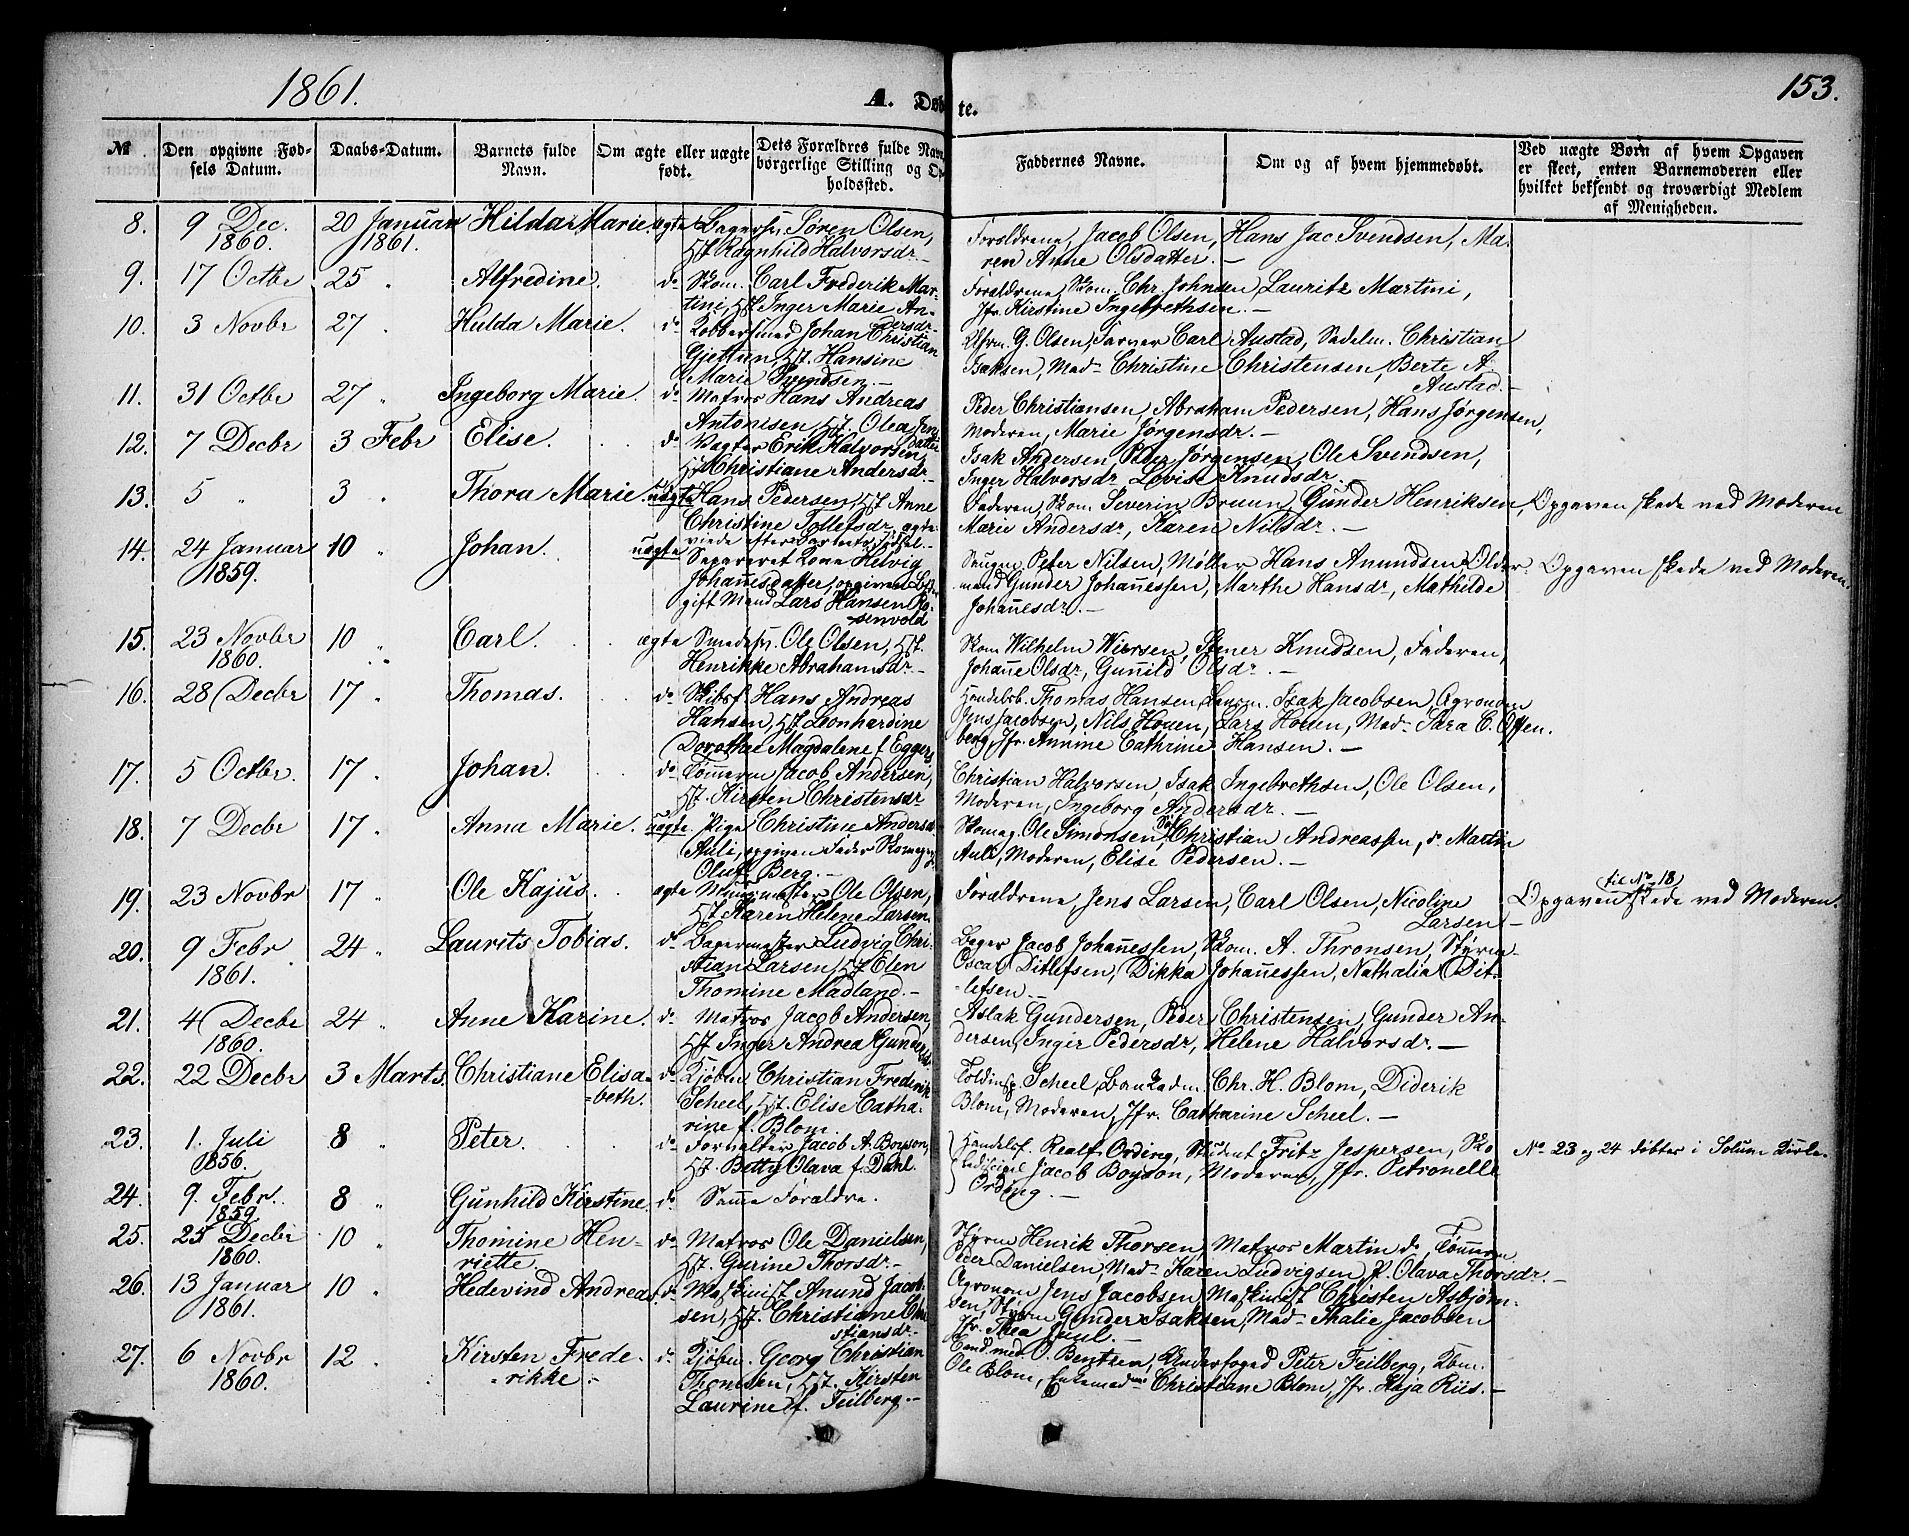 1861.
A. Døbte.
153.
№
Den opgivne Fød-
sels Datum.
Daabs-Datum.
Barnets fulde
Navn.
Om ægte eller uægte
født.
Dets Forældres fulde Navn,
borgerlige Stilling og Op-
holdssted.
Faddernes Navne.
Om og af hvem hjemmedøbt.
Ved uægte Børn af hvem Opgaven
er skeet, enten Barnemoderen eller
hvilket bekjendt og troværdigt Medlem
af Menigheden.
8. 9 Dec. 1860. 20 Januar 1861. Hilda Marie. ægte Søren Olsen,
Hst Ragnhild Halvorsdr.
Forældrene, Jacob Olsen, Hans Jac Svendsen, Ma-
ren Anne Olsdatter.
9. 17 Octbr 25 " Alfredine. do Skom. Carl Frederik Mar-
tini, Hst Inger Marie An-
dersdr
Forældrene, Skom. Chr. Johnsen, Lauritz Martini,
Jfr. Kirstine Ingebrethsen.
10. 3 Novbr 27 " Hulda Marie. do Kobbersmed Johan Christian
Gjettun, Hst. Hansine
Marie Svendsen.
G. Olsen, Farver Carl Austad, Sadelm. Christian
Isaksen, Mad. Christine Christensen, Berte A.
Austad.
11. 31 Octbr 27 " Ingeborg Marie. do Matros Hans Andreas
Antonisen, Hst. Olea Jens
datter
Peder Christiansen, Abraham Pedersen, Hans Jørgensen,
Moderen, Marie Jørgensdr.
12. 7 Decbr 3 Febr Elise. do Vægter Erik Halvorsen,
Hst Christiane Andersdr.
Isak Andersen, Peder Jørgensen, Ole Svendsen,
Inger Halvorsdr, Lovise Knudsdr.
13. 5 " 3 " Thora Marie. uægte Hans Pedersen, Hst Anne
Christine Tollefsdr, ægte-
viede efter Barnets Fødsel.
Faderen, Skom. Severin Bruun, Gunder Henriksen,
Marie Andersdr, Karen Nilsdr.
Opgaven skede ved Moderen
14. 24 Januar 1859. 10 " Johan. uægte Separeret Kone Helvig
Johannesdatter, opgiven
gift Mand Lars Hansen Ro-
senvold
Peter Nilsen, Møller Hans Amundsen, Older-
mand Gunder Johannessen, Marthe Hansdr, Mathilde
Johannesdr.
Opgaven skede ved Moderen.
15. 23 Novbr 1860. 10 " Carl. ægte Smedesv. Ole Olsen, Hst.
Henrikke Abrahamsdr.
Skom Wilhelm Wiersen, Stener Knudsen, Faderen,
Johanne Olsdr, Gunild Olsdr.
16. 28 Decbr 17 " Thomas. do Skibsf. Hans Andreas
Hansen, Hst. Leonhardine
Dorothea Magdalene f. Eggers
Handelsb. Thomas Hansen, Isak Jacobsen, Agronom
Jens Jacobsen, Nils Houen, Lars Houen, Mad. Sara C. Offen-
berg, Jfr. Annine Cathrine Hansen.
17. 5 Octbr. 17 " Johan. do Tømmerm Jacob Andersen,
Hst. Kirsten Christensdr
Christian Halvorsen, Isak Ingebrethsen, Ole Olsen,
Moderen, Ingeborg Andersdr.
18. 7 Decbr 17 " Anna Marie. uægte. Pige Christine Andersdr
Auli, opgiven Fader Skomager
Oluf Berg.
Skomag. Ole Simonsen, Christian Andreassen, do Martin
Auli, Moderen, Elise Pedersen.
19. 23 Novbr 17 " Ole Kajus. ægte Ole Olsen,
Hst Karen Helene Larsen.
Forældrene, Jens Larsen, Carl Olsen, Nicoline
Larsen
til No 18
Opgaven skede ved Moderen.
20. 9 Febr 1861. 24 " Laurits Tobias. do Bagermester Ludvig Chri-
stian Larsen, Hst Elen
Thomine Madland.
Bager Jacob Johannessen, Skom. A. Thronsen, Styrm.
Oscar Ditlefsen, Dikka Johannessen, Nathalia Dit-
lefsen.
21. 4 Decbr 1860. 24 " Anne Karine. do Matros Jacob Andersen,
Hst Inger Andrea Gundersdr
Aslak Gundersen, Peder Christensen, Gunder An-
dersen, Inger Pedersdr, Helene Halvorsdr.
22. 22 Decbr 3 Marts. Christiane Elisa-
beth. do Kjøbm Christian Frederik
Scheel, Hst. Elise Catha-
rine f. Blom.
Toldinsp Scheel, Chr. H. Blom, Diderik
Blom, Moderen, Jfr. Catharine Scheel.
23. 1. Juli 1856. 8 " Peter. do Forvalter Jacob A. Boyson,
Hst. Betty Olava f. Dahl.
Handelsf. Realf Ording, Student Fritz Jespersen, Sko-
ledisciple Jacob Boyson, Moderen, Jfr. Petronelle
Ording.
No 23 og 24 døbte i Solum Kirke.
24. 9. Febr. 1859 8 " Gunhild Kirstine. do Samme Forældre.
25. 25 Decbr 1860. 10 " Thomine Hen-
riette. do Matros Ole Danielsen,
Hst. Gurine Thorsdr.
Styrm Henrik Thorsen, Matros Martin do, Tømmerm
Peder Danielsen, Mad. Karen Ludvigsen, P. Olava Thorsdr.
26. 13 Januar 1861. 10 " Hedevind Andreas. do Maskinist Amund Jacob-
sen, Hst. Christiane Chri-
stiansdr.
Agronom Jens Jacobsen, Maskinist Christen Asbjørn-
sen, Styrm Gunder Isaksen, Mad. Thalie Jacobsen
Jfr. Thea Juul.
27. 6 Novbr 1860. 12 " Kirsten Frede-
rikke. do Kjøbm. Georg Christian
Thomesen, Hst. Kirsten
Laurine f. Feilberg.
Cand. med. O. Bentzen, Underfoged Peter Feilberg, Kbm.
Ole Blom, Enkemadm Christiane Blom, Jfr. Kaja Riis.